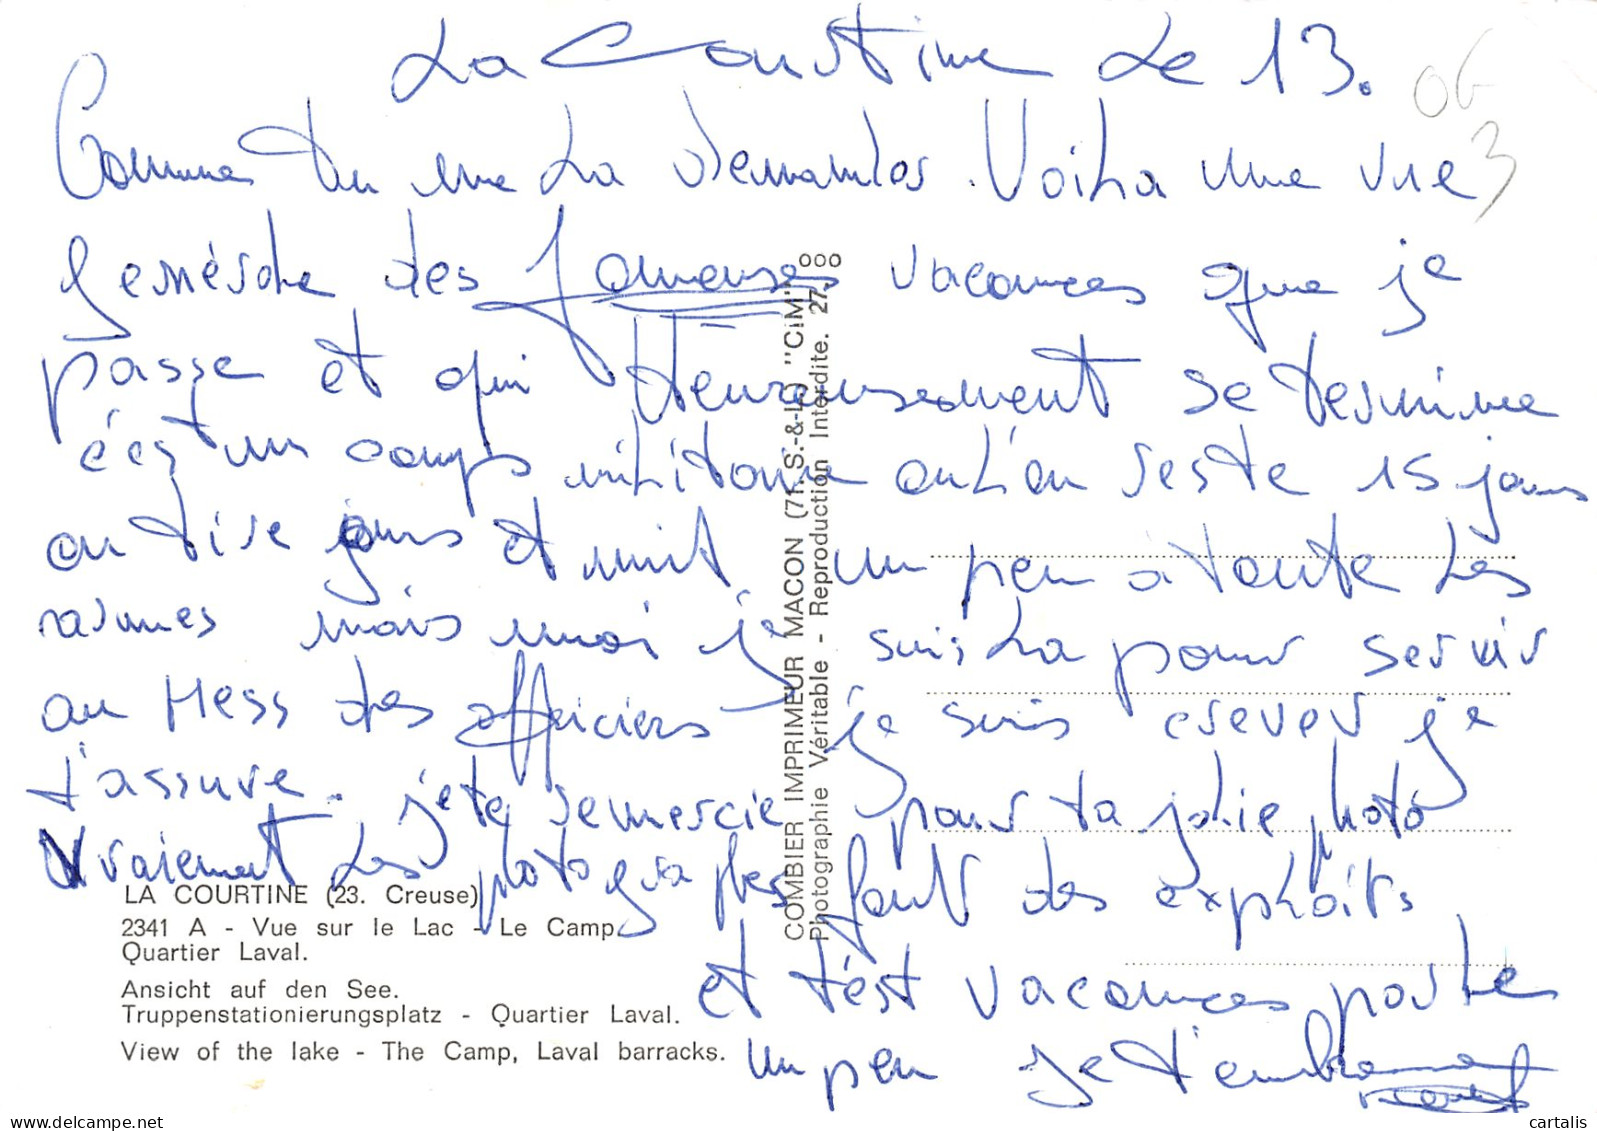 La Courtine Le 13.
06
3
Comme tu me la demandes. Voila une vue
generale des fameuses vacances que je
passe et qui Heureusement se termine
c'est un camps militaire ou l'on reste 15 jours
on tire jours et nuit un peu a toute les
armes mais moi je suis la pour servir
au Mess des officiers je suis crever je
t'assure. je te remercie pour ta jolie photo
Vraiment les photographes font des exploits
et t'est vacances parle
un peu je t'embrasse
LA COURTINE (23. Creuse)
2341 A - Vue sur le Lac - Le Camp
Quartier Laval.
Ansicht auf den See.
Truppenstationierungsplatz - Quartier Laval.
View of the lake - The Camp, Laval barracks.
COMBIER IMPRIMEUR MACON (71. S.-&-L.) "CIM"
Photographie Véritable - Reproduction Interdite. 27.
cartalis